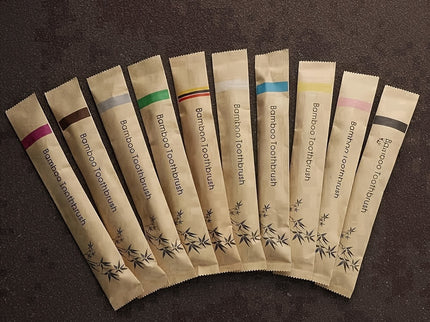 Bamboo Toothbrush
Bamboo Toothbrush
Bamboo Toothbrush
Bamboo Toothbrush
Bamboo Toothbrush
Bamboo Toothbrush
Bamboo Toothbrush
Bamboo Toothbrush
Bamboo Toothbrush
Bamboo Toothbrush